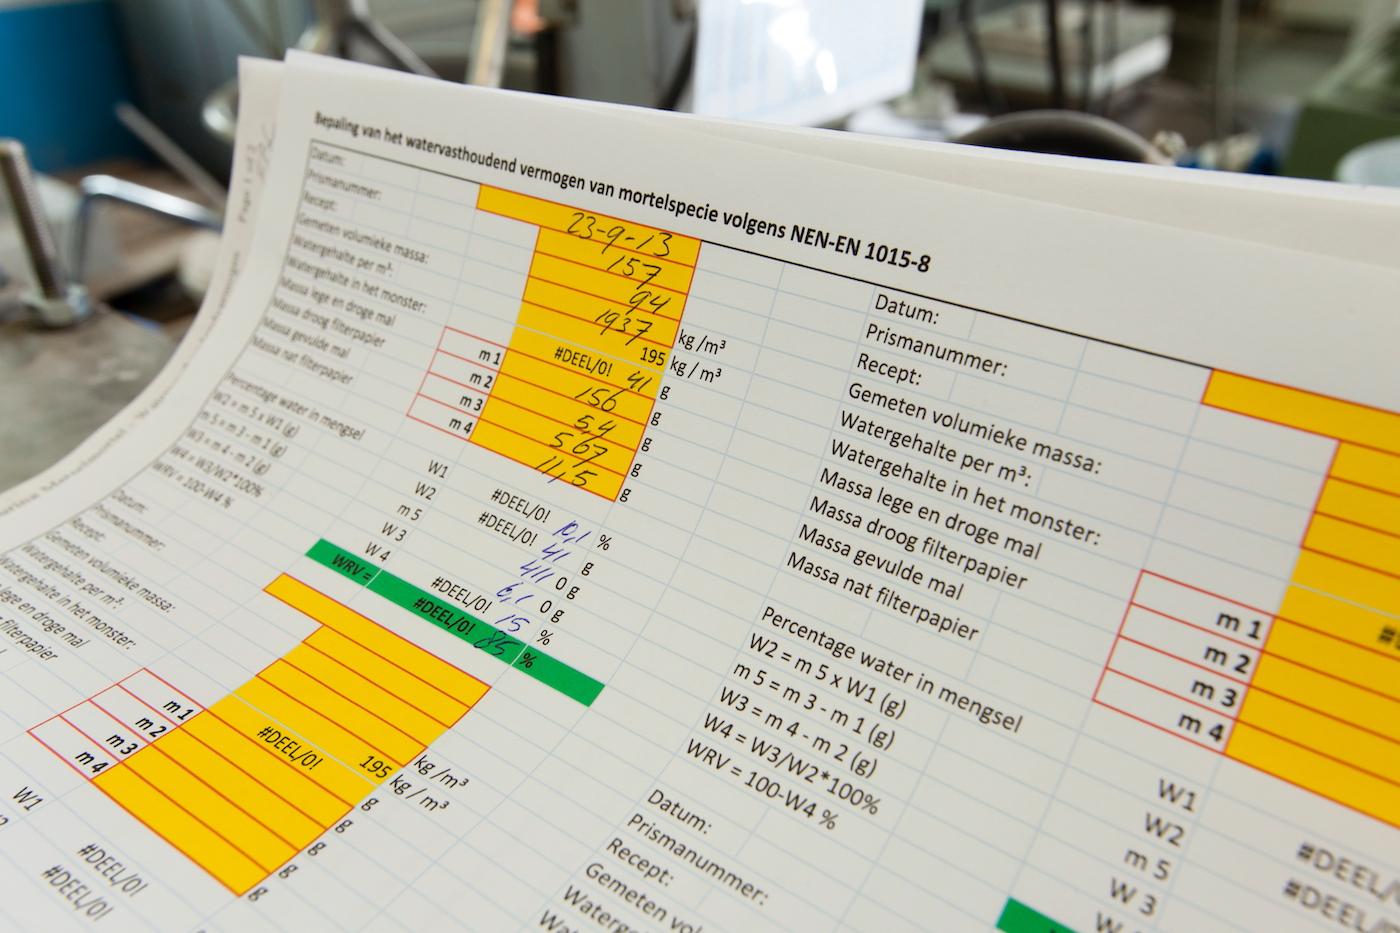 Bepaling van het watervasthoudend vermogen van mortelspecie volgens NEN-EN 1015-8
Datum: 23-9-13
Prismanummer: 157
Recept: 94
Gemeten volumieke massa: 1937 kg/m³
Watergehalte per m³: 195 kg/m³
Watergehalte in het monster: #DEEL/0! 41 g
Massa lege en droge mal m 1 156 g
Massa droog filterpapier m 2 5,4 g
Massa gevulde mal m 3 567 g
Massa nat filterpapier m 4 11,5 g
Percentage water in mengsel W1 #DEEL/0! 10,1 %
W2 = m 5 x W1 (g) W2 #DEEL/0! 41 g
m 5 = m 3 - m 1 (g) m 5 411 0 g
W3 = m 4 - m 2 (g) W 3 6,1 0 g
W4 = W3/W2*100% W 4 #DEEL/0! 15 %
WRV = 100-W4 % WRV = #DEEL/0! 85 %
Datum:
Prismanummer:
Recept:
Gemeten volumieke massa:
Watergehalte per m³: 195 kg/m³
Watergehalte in het monster: #DEEL/0! kg/m³
lege en droge mal m 1 g
filterpapier m 2 g
m 3 g
m 4 g
W1 #DEEL/0!
#DEEL/0!
Datum:
Prismanummer:
Recept:
Gemeten volumieke massa:
Watergehalte per m³:
Watergehalte in het monster:
Massa lege en droge mal m 1
Massa droog filterpapier m 2
Massa gevulde mal m 3
Massa nat filterpapier m 4
Percentage water in mengsel W1
W2 = m 5 x W1 (g) W2 #DEEL/
m 5 = m 3 - m 1 (g) m 5 #DEEL/0
W3 = m 4 - m 2 (g) W 3
W4 = W3/W2*100%
WRV = 100-W4 %
Datum:
Prismanummer:
Recept:
Gemeten vol
Waterge
Wat